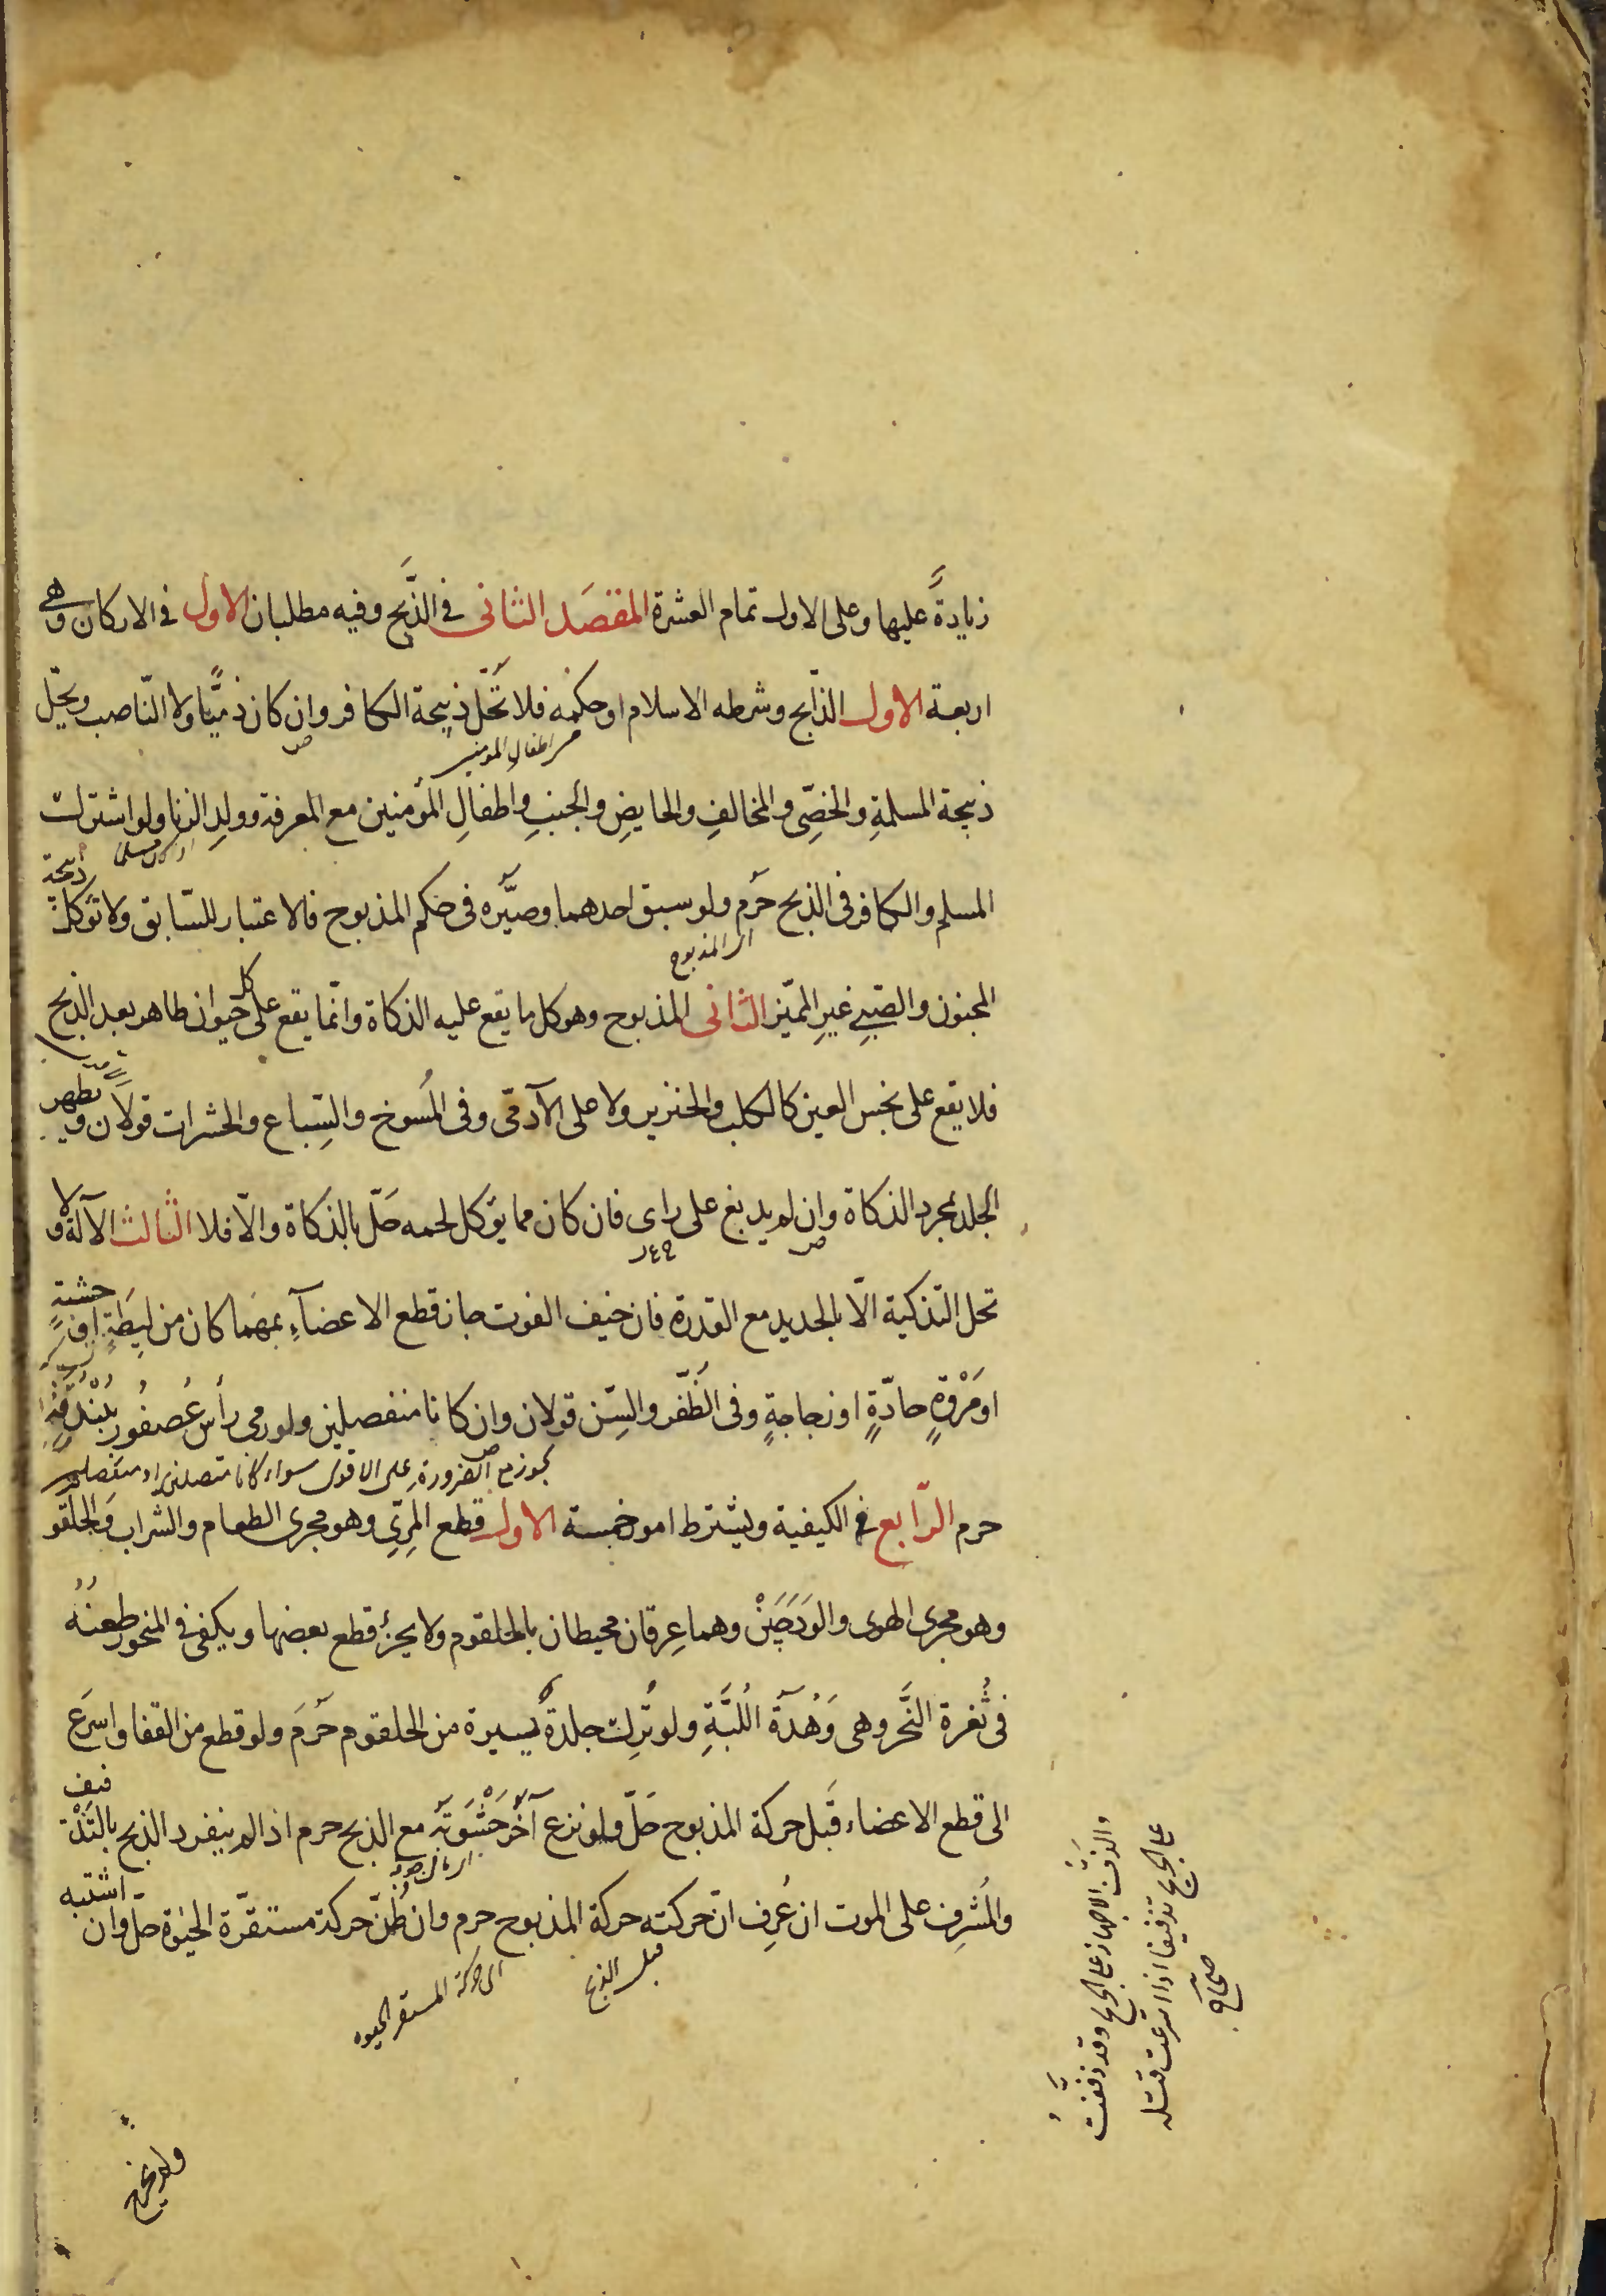 زيادةً عليها وعلى الاول تمام العشرة المقصَد الثانى فى الذَّبح وفيه مطلبان الاول فى الاركان وهى
اربعة الاول الذّابح وشرطه الاسلام او حكمه فلا تَحلّ ذبيحة الكافر وان كان ذميًّا ولا النّاصب ويحلّ
اطفال المومنين
ذبيحة المسلمةِ والخصِّى والمخالفِ والحايضِ والجنبِ واطفالِ المؤمنين مع المعرفة وولدِ الزنا ولو اشترك
المسلم والكافر فى الذبح حَرُم ولو سبق احدهما وصيَّره فى حكم المذبوح فالاعتبار للسّابق ولا تؤكل ذبيحة
اى المذبوح
المجنون والصّبىِ غيرِ المميّز الثانى المذبوح وهو كل ما يقع عليه الذكاة وانّما يقع على كل حيوان طاهر بعد الذبح
فلا يقع على نجس العين كالكلب والخنزير ولا على الآدمّى وفى المُسوخ والسِّباع والحشرات قولان ويطهر
الجلد بمجرد الذكاة وان لم يدبغ على راى فان كان مما يؤكل لحمه حَلّ بالذكاة والّا فلا الثالث الآلة ولا
تحل التذكية الّا بالحديد مع القدرة فان خيف الفوت جاز قطع الاعضآءِ بمهما كان من لِيطَةٍ او خشبةٍ
او مَرْوَةٍ حادّةٍ او زجاجةٍ وفى الظُّفر والسِّن قولان وان كانا منفصلين ولو رمى رأس عُصفُورٍ بُنْدُقةٍ
يجوز مع الضرورة على الاقوى سواء كانا متصلين او منفصلين
حرم الرّابع فى الكيفية ويشترط امور خمسة الاول قطع المرِىّ وهو مجرى الطعام والشراب والحلقوم
وهو مجرى الهوى والوَدَجَيْن وهما عِرقان محيطان بالحلقوم ولا يجزئ قطع بعضها ويكفى فى المنحور طعنُهُ
فى ثُغرة النَّحر وهى وَهْدَةُ اللَّبَّةِ ولو تُرِك جلدةٌ يسيرة من الحلقوم حَرُمَ ولو قطع من القفا واسرَع
الى قطع الاعضاء قَبل حركة المذبوح حَلّ ولو نزع آخَرُ حَشْوَتَه مع الذبح حرم اذا لم ينفرد الذبح بالتَذْفيف
والمُشرِف على الموت ان عُرِف انّ حركته حركة المذبوح حرم وان ظُنّ حركة مستقرّة الحيٰوة حلّ وان اشتبه
قبل الذبح
اى حركة المستقر الحيوة
والذفّ الاجهاز على الجريح وقد ذفّفتُ
على الجريح تذفيفا اذا اسرعت قتله
صحاح
ولم يخرج